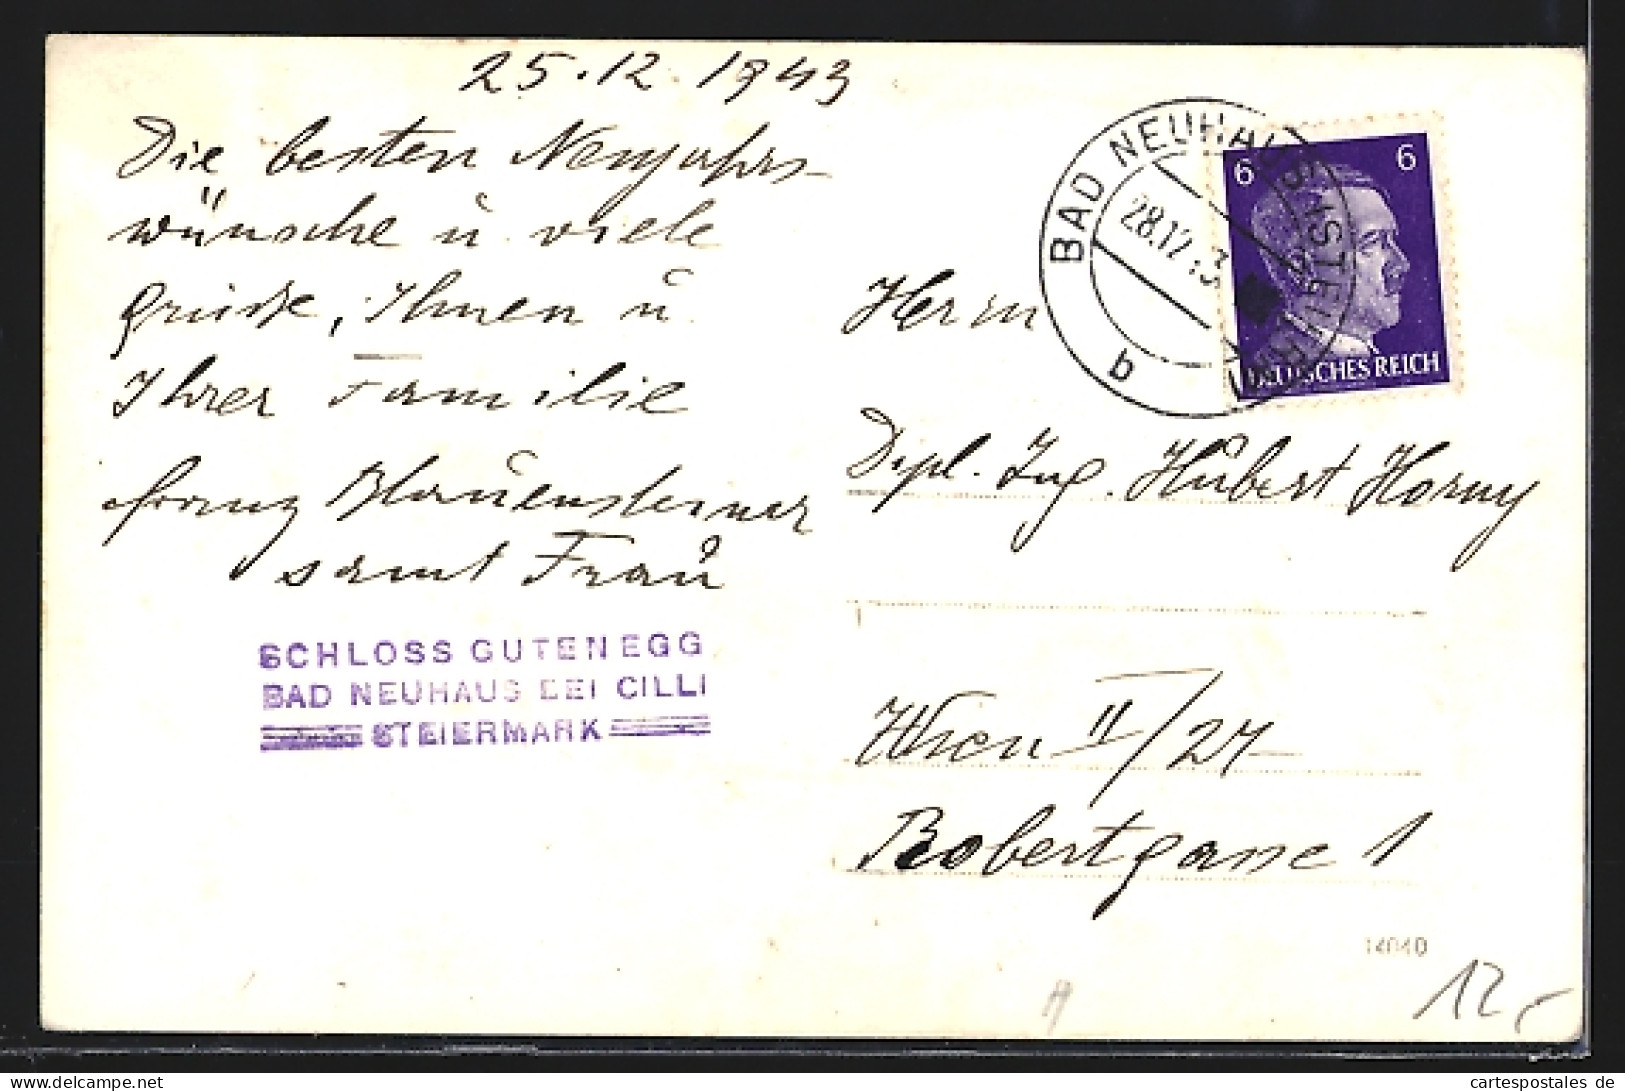 25.12.1943
Die besten Neujahrs-
wünsche u. viele
Grüsse, Ihnen u.
Ihrer Familie
Franz Blauensteiner
samt Frau
SCHLOSS GUTENEGG
BAD NEUHAUS BEI CILLI
STEIERMARK
BAD NEUHAUS
28.12.43
b
6 6
DEUTSCHES REICH
Herrn
Dipl. Ing. Hubert Horny
Wien II/27
Robertgasse 1
14040
12,-
cartespostales de